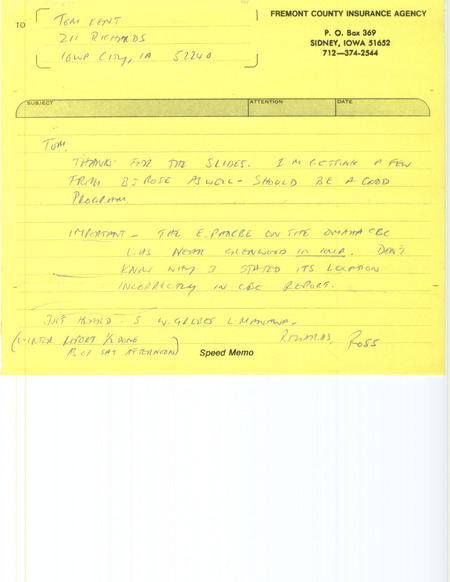 FREMONT COUNTY INSURANCE AGENCY
P. O. Box 369
SIDNEY, IOWA 51652
712—374-2544
TO
TOM KENT
211 RICHARDS
IOWA CITY, IA 52240
SUBJECT ATTENTION DATE
TOM,
THANKS FOR THE SLIDES. I'M GETTING A FEW
FROM B J ROSE AS WELL - SHOULD BE A GOOD
PROGRAM.
IMPORTANT - THE E. PHOEBE ON THE OMAHA CBC
WAS NEAR GLENWOOD IN IOWA. DON'T
KNOW WHY I STATED ITS LOCATION
INCORRECTLY IN CBC REPORT.
JUST HEARD - 5 W. GREBES L. MANAWA.
(WINTER REPORT IS DONE
AS OF SAT AFTERNOON)
REGARDS, ROSS
Speed Memo